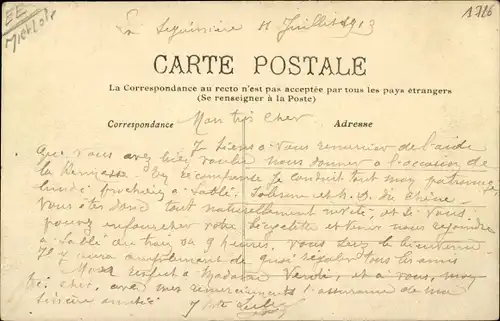 EE
A 716
11 Juillet 1913
CARTE POSTALE
La Correspondance au recto n'est pas acceptée par tous les pays étrangers
(Se renseigner à la Poste)
Correspondance
Adresse
Mon cher
Je tiens à vous remercier de l'aide
que vous avez bien voulu nous donner à l'occasion de
la Kermesse. En récompense je conduis tout mon patronage
lundi prochain à Sablé, Solesmes et N. D. du Chêne
Vous êtes donc tout naturellement invité, et si vous
pouvez enfourcher votre bicyclette et venir nous rejoindre
à Sablé au train de 9 heures, vous serez le bienvenu.
Il y aura amplement de quoi régaler tous les amis
Mon respect à Madame et à vous, mon
cher, avec mes remerciements l'assurance de ma
sincère amitié